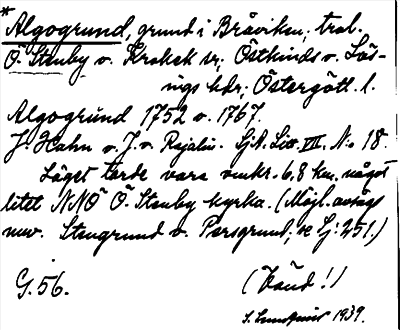 * Algogrund, grund i Bråviken; trol.
Ö. Stenby o. Krokek sr; Östkinds o. Lös-
ings hdr; Östergötl. l.
Algogrund 1752 o. 1767.
J. Hahn o. J. v. Rajalin. Sjk. Litt. VII. No 18.
Läget torde vara omkr. 6.8 km. något
litet NNÖ Ö. Stenby kyrka. (Möjl. avsågs
nuv. Stengrund o. Persgrund; se Sj: 251.)
G. 56.
(Vänd!)
1939.